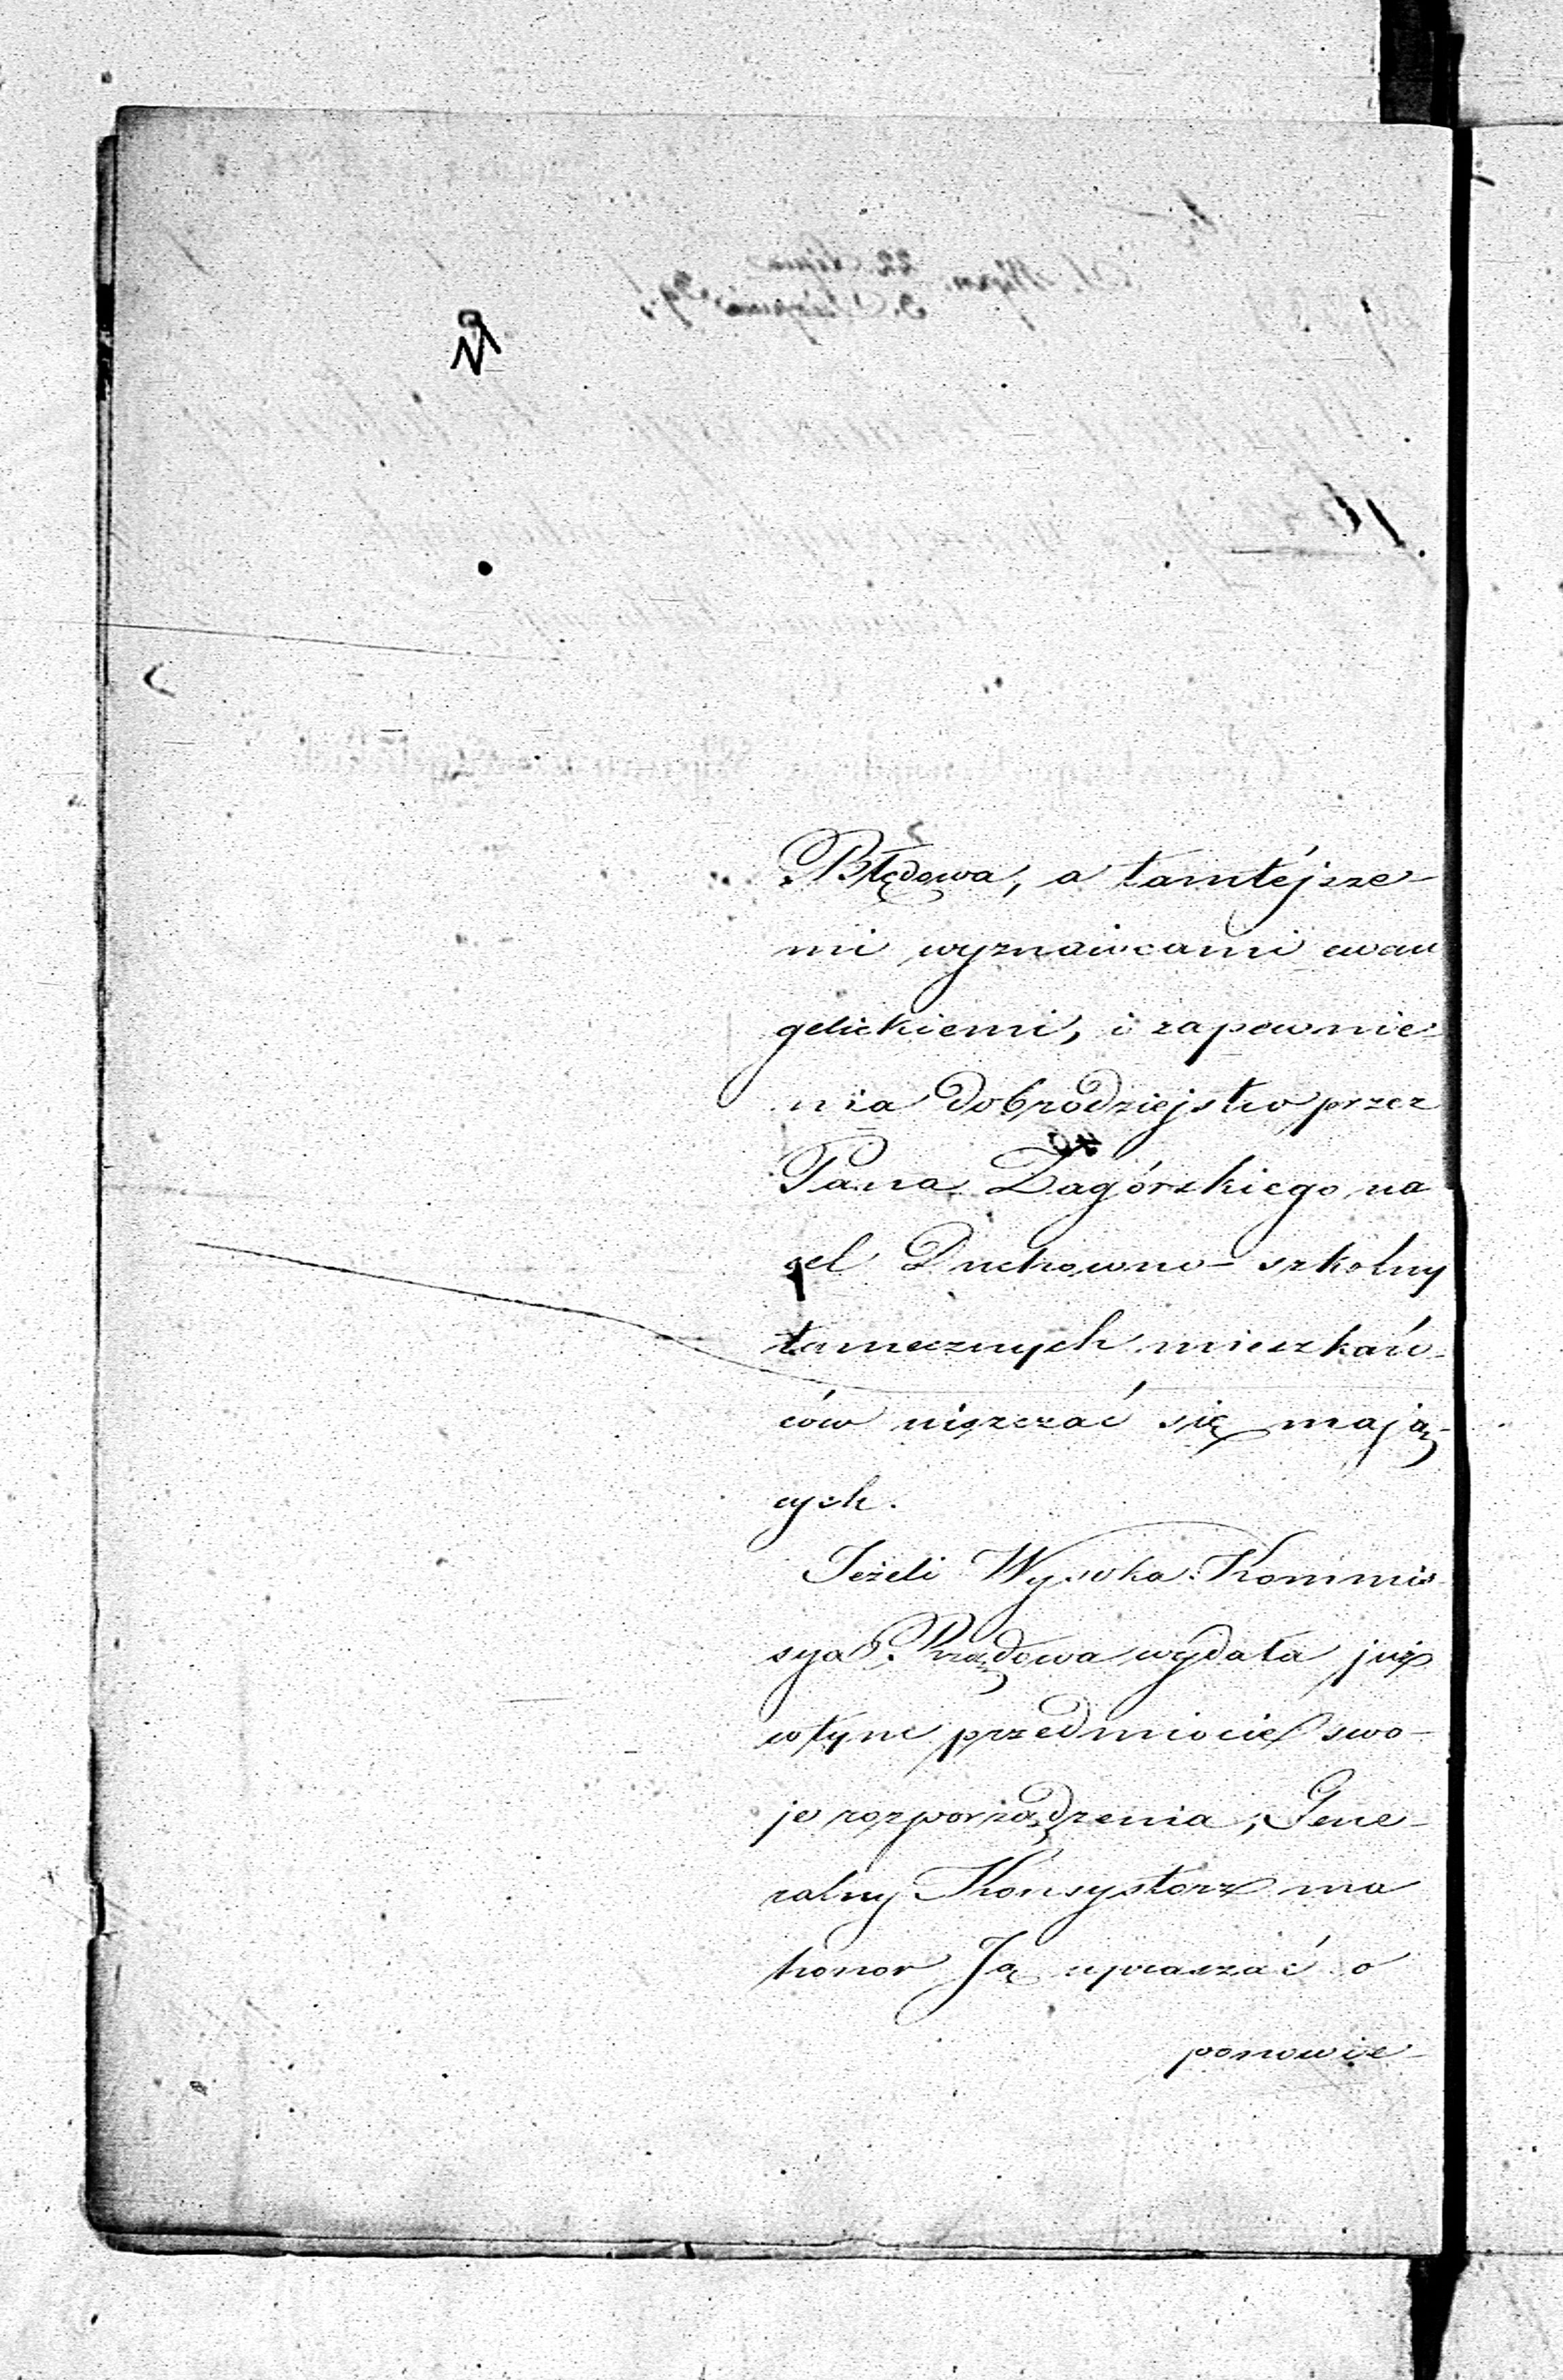 Błędowa, a tamtéjsze-
mi wyznawcami ewan
gelickiemi, i zapewnie-
nia dobrodziejstw przez
Pana Zagórskiego na
cel Duchowno-szkolny
tamecznych mieszkań-
ców uiszczać się mają-
cych.
Jeżeli Wysoka Kommis
sya Rządowa wydała już
w tym przedmiocie swo-
je rozporządzenia, Gene-
ralny Konsystorz ma
honor Ją upraszać o
ponowie-